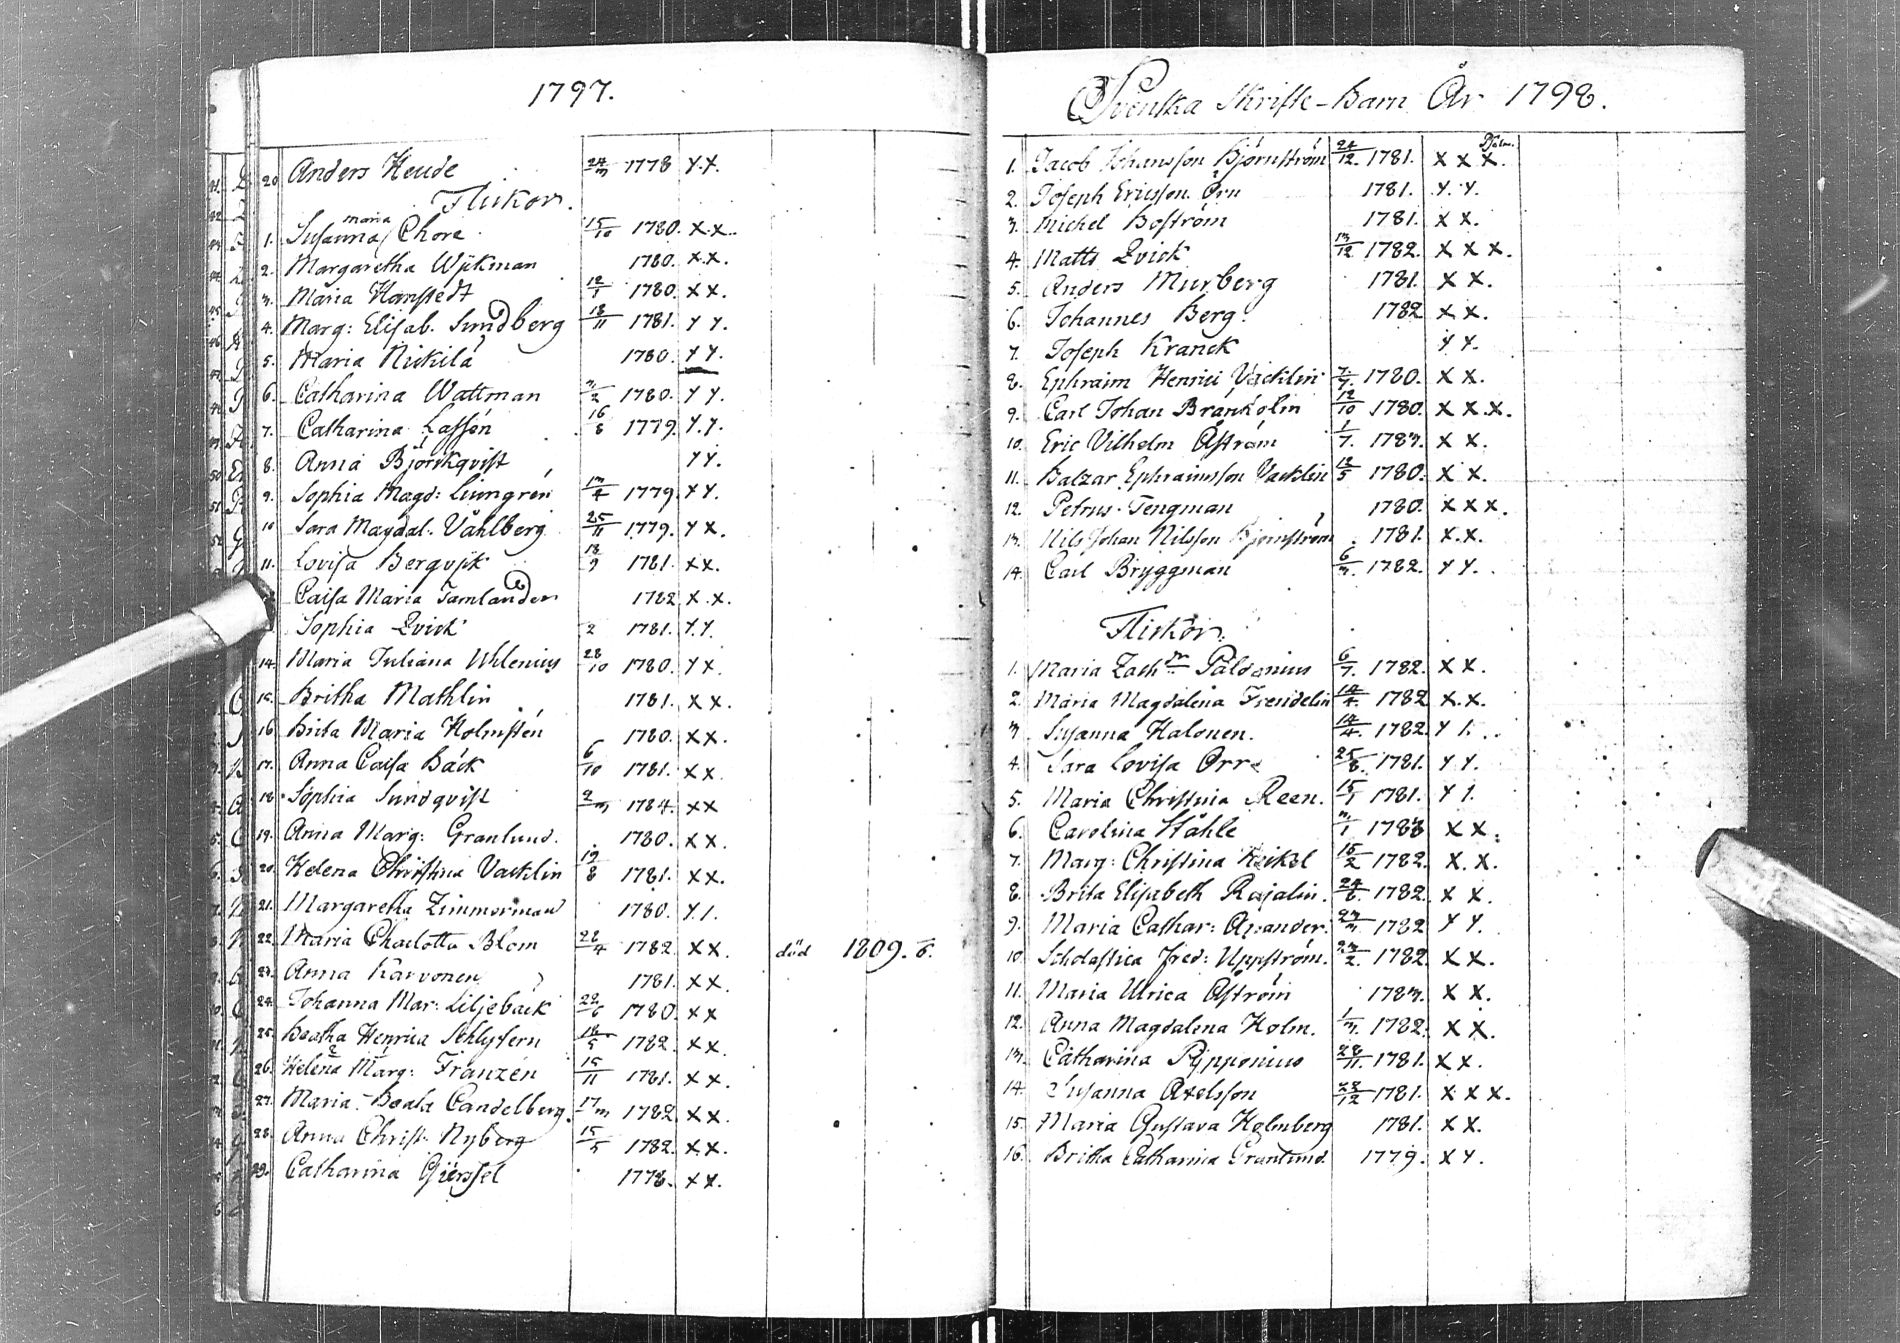 1797.
20 Anders Heude 24/3 1778 x.x.
Flickor.
1. Susanna maria Chore 15/10 1780. x.x.
2. Margaretha Wijkman 1780. x.x.
3. Maria Hanstedt 12/1 1780. x x.
4. Marg: Elisab. Sundberg 18/11 1781. x x.
5. Maria Nickilä 1780. x x.
6. Catharina Wattman 3/2 1780. x x
7. Catharina Lassén 16/8 1779. x.x.
8. Anna Björkqvist x x.
9. Sophia Magd: Liungrén 13/4 1779 x x.
10 Sara Magdal. Våhlberg 25/11 1779. x x.
11. Lovisa Bergvijk 18/9 1781. x x.
Caisa Maria Tamlander 1782 x.x.
Sophia Qvick 2 1781. x.x.
14. Maria Juliana Uhlenius 28/10 1780. x x.
15. Britha Mathlin 1781. x x.
16 Brita Maria Holmstén 1780. x x.
17. Anna Caisa Bäck 6/10 1781. x x.
18. Sophia Sundqvist 2/3 1784. x x
19. Anna Marg: Granlund. 1780. x x.
20. Helena Christina Vacklin 19/8 1781. x x.
21. Margaretha Zimmerman 1780. x.x.
22. Maria Charlotta Blom 28/4 1782. x x. död 1809.
23. Anna Karvonen 1781. x x.
24. Johanna Mar: Liljebäck 22/6 1780. x x
25. Beatha Henrica Schlytern 18/5 1782. x x.
26. Helena Marg: Franzén 15/11 1781. x x.
27. Maria Beata Candelberg. 17/3 1782. x x.
28. Anna Christ. Nyberg 15/5 1782. x x.
29. Catharina Gierssel 1778. x x.
Svenska Skrifte-Barn År 1798.
1. Jacob Johansson Björnström 24/12. 1781. x x x.
2. Joseph Ericsson Örn 1781. x.x.
3. Michel Boström 1781. x x.
4. Matts Qvick 13/12 1782. x x x.
5. Anders Murberg 1781. x x.
6. Johannes Berg. 1782 x x.
7. Joseph Kranck x x.
8. Ephraim Henrici Vacklin 7/7. 1780. x x.
9. Carl Johan Brankolin 12/10 1780. x x x.
10. Eric Vilhelm Åström 1/7. 1783. x x.
11. Balzar Ephraimsson Vacklin 18/5 1780. x x.
12. Petrus Tengman 1780. x x x.
13. Nils Johan Nilsson Björnström 1781. x.x.
14. Carl Bryggman 6/3. 1782. x x.
Flickor.
1. Maria Zach Paldanius 6/7. 1782. x x.
2. Maria Magdalena Frendelin 14/4. 1782 x.x.
3. Susanna Halonen. 14/4. 1782. x x.
4. Sara Lovisa Orre 25/8. 1781. x x.
5. Maria Christina Reen. 15/1 1781. x x.
6. Carolina Ståhle 3/1 1783 x x.
7. Marg: Christina Heikel 15/2 1782. x.x.
8. Brita Elisabeth Rajalin. 24/6. 1782. x x.
9. Maria Cathar: 23/3 1782 x x.
10. Scholastica Fred: Uppström. 23/2. 1782. x x.
11. Maria Ulrica Åström 1783. x x.
12. Anna Magdalena Holm. 1/3. 1782. x x.
13. Catharina Pipponius 28/11. 1781. x x.
14. Susanna Axelsson 28/12 1781. x x x.
15. Maria Gustava Holmberg 1781. x x.
16. Britha Catharina Granlund. 1779. x x.